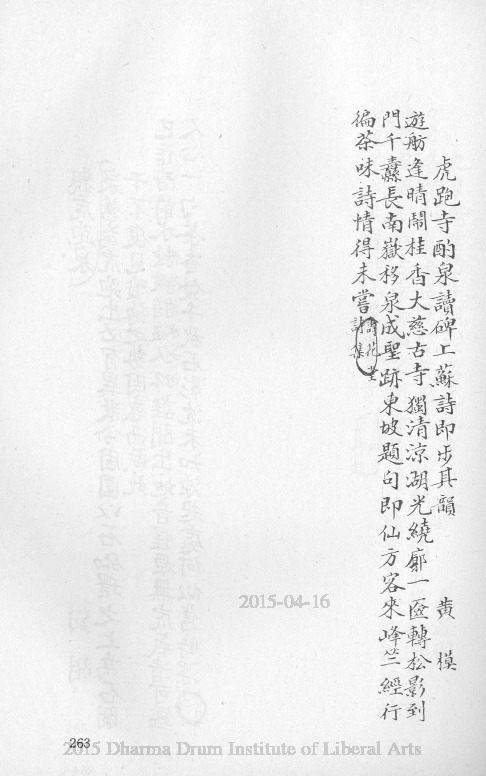 虎跑寺酌泉讀碑上蘇詩即步其韻　黃模
遊舫逢晴鬧桂香大慈古寺獨清涼湖光繞廓一匝轉松影到
門千纛長南嶽移泉成聖跡東坡題句即仙方客來峰竺經行
徧茶味詩情得未嘗
詩集
2015-04-16
263
2015 Dharma Drum Institute of Liberal Arts